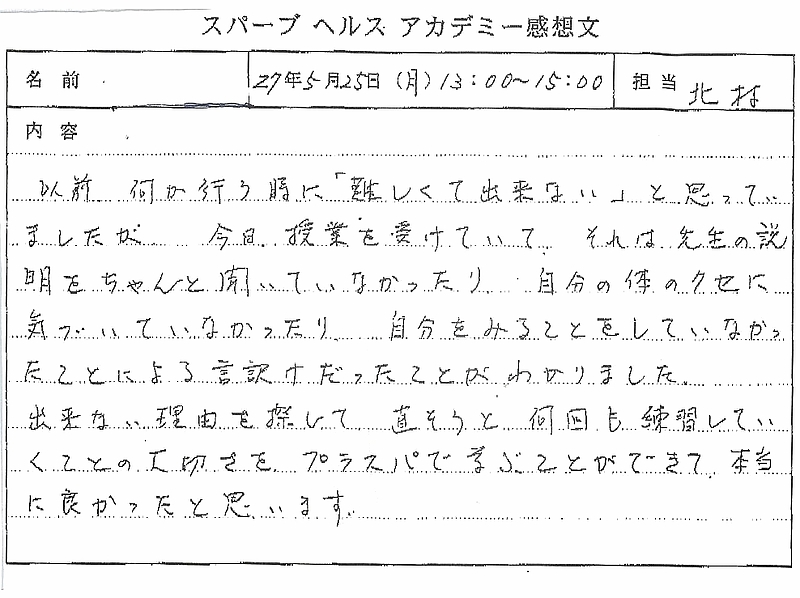 スパーブ ヘルス アカデミー感想文
名前
27年5月25日(月)13:00~15:00
担当 北村
内容
以前 何か行う時に「難しくて出来ない」と思ってい
ましたが 今日、授業を受けていて、それは先生の説
明をちゃんと聞いていなかったり、自分の体のクセに
気づいていなかったり、自分をみることをしていなかっ
たことによる言訳けだったことがわかりました。
出来ない理由を探して 直そうと 何回も練習してい
くことの大切さを、プラスパで学ぶことができて、本当
に良かったと思います。